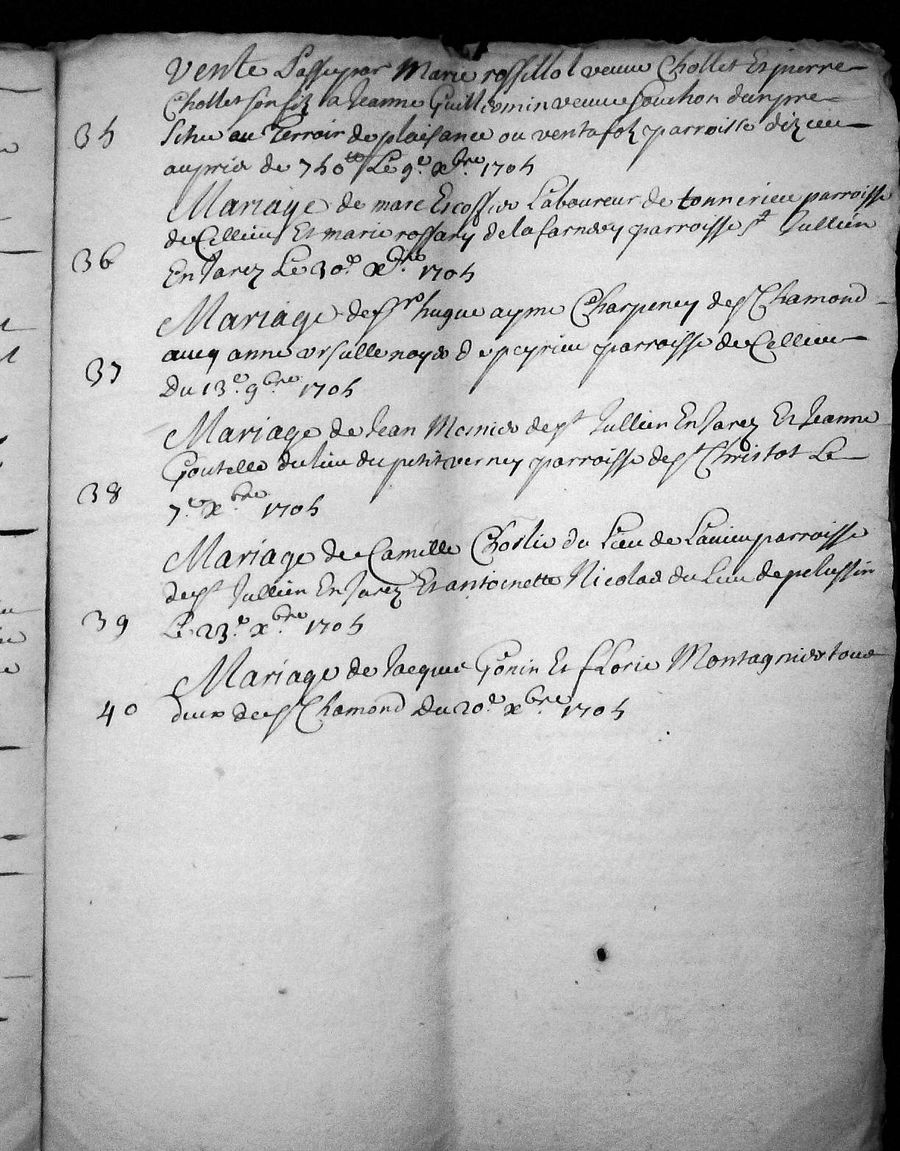 Vente passée par Marie rossillol veuve Chollet Et pierre
Chollet son filz a Jeanne Guillermin veuve souchon d'un pre
35 Situe au Terroir de plaisance ou ventafol parroisse dizieu
au prix de 750tt Le 9e xbre 1705
Mariage de marc Escoffier Laboureur de tonnerieu parroisse
de Cellieu Et marie rossary de la farnery parroisse st Jullien
36 En Jarez Le 30e xbre 1705
Mariage de sr hugue ayme Charpeney de st Chamond
aueq anne ursulle noyer de peyrieu parroisse de Cellieu
37 Du 13e 9bre 1705
Mariage de Jean Monier de st Jullien En Jarez Et Jeanne
Goutelle du lieu du petit verney parroisse de st Christot Le
38 7e xbre 1705
Mariage de Camille Chorlie du Lieu de Lauieu parroisse
de st Jullien En Jarez Et antoinette Nicolas du Lieu de pelussin
39 Le 23e xbre 1705
Mariage de Jacque Gonin Et florie Montagnier tous
40 deux de st Chamond Du 20e xbre 1705